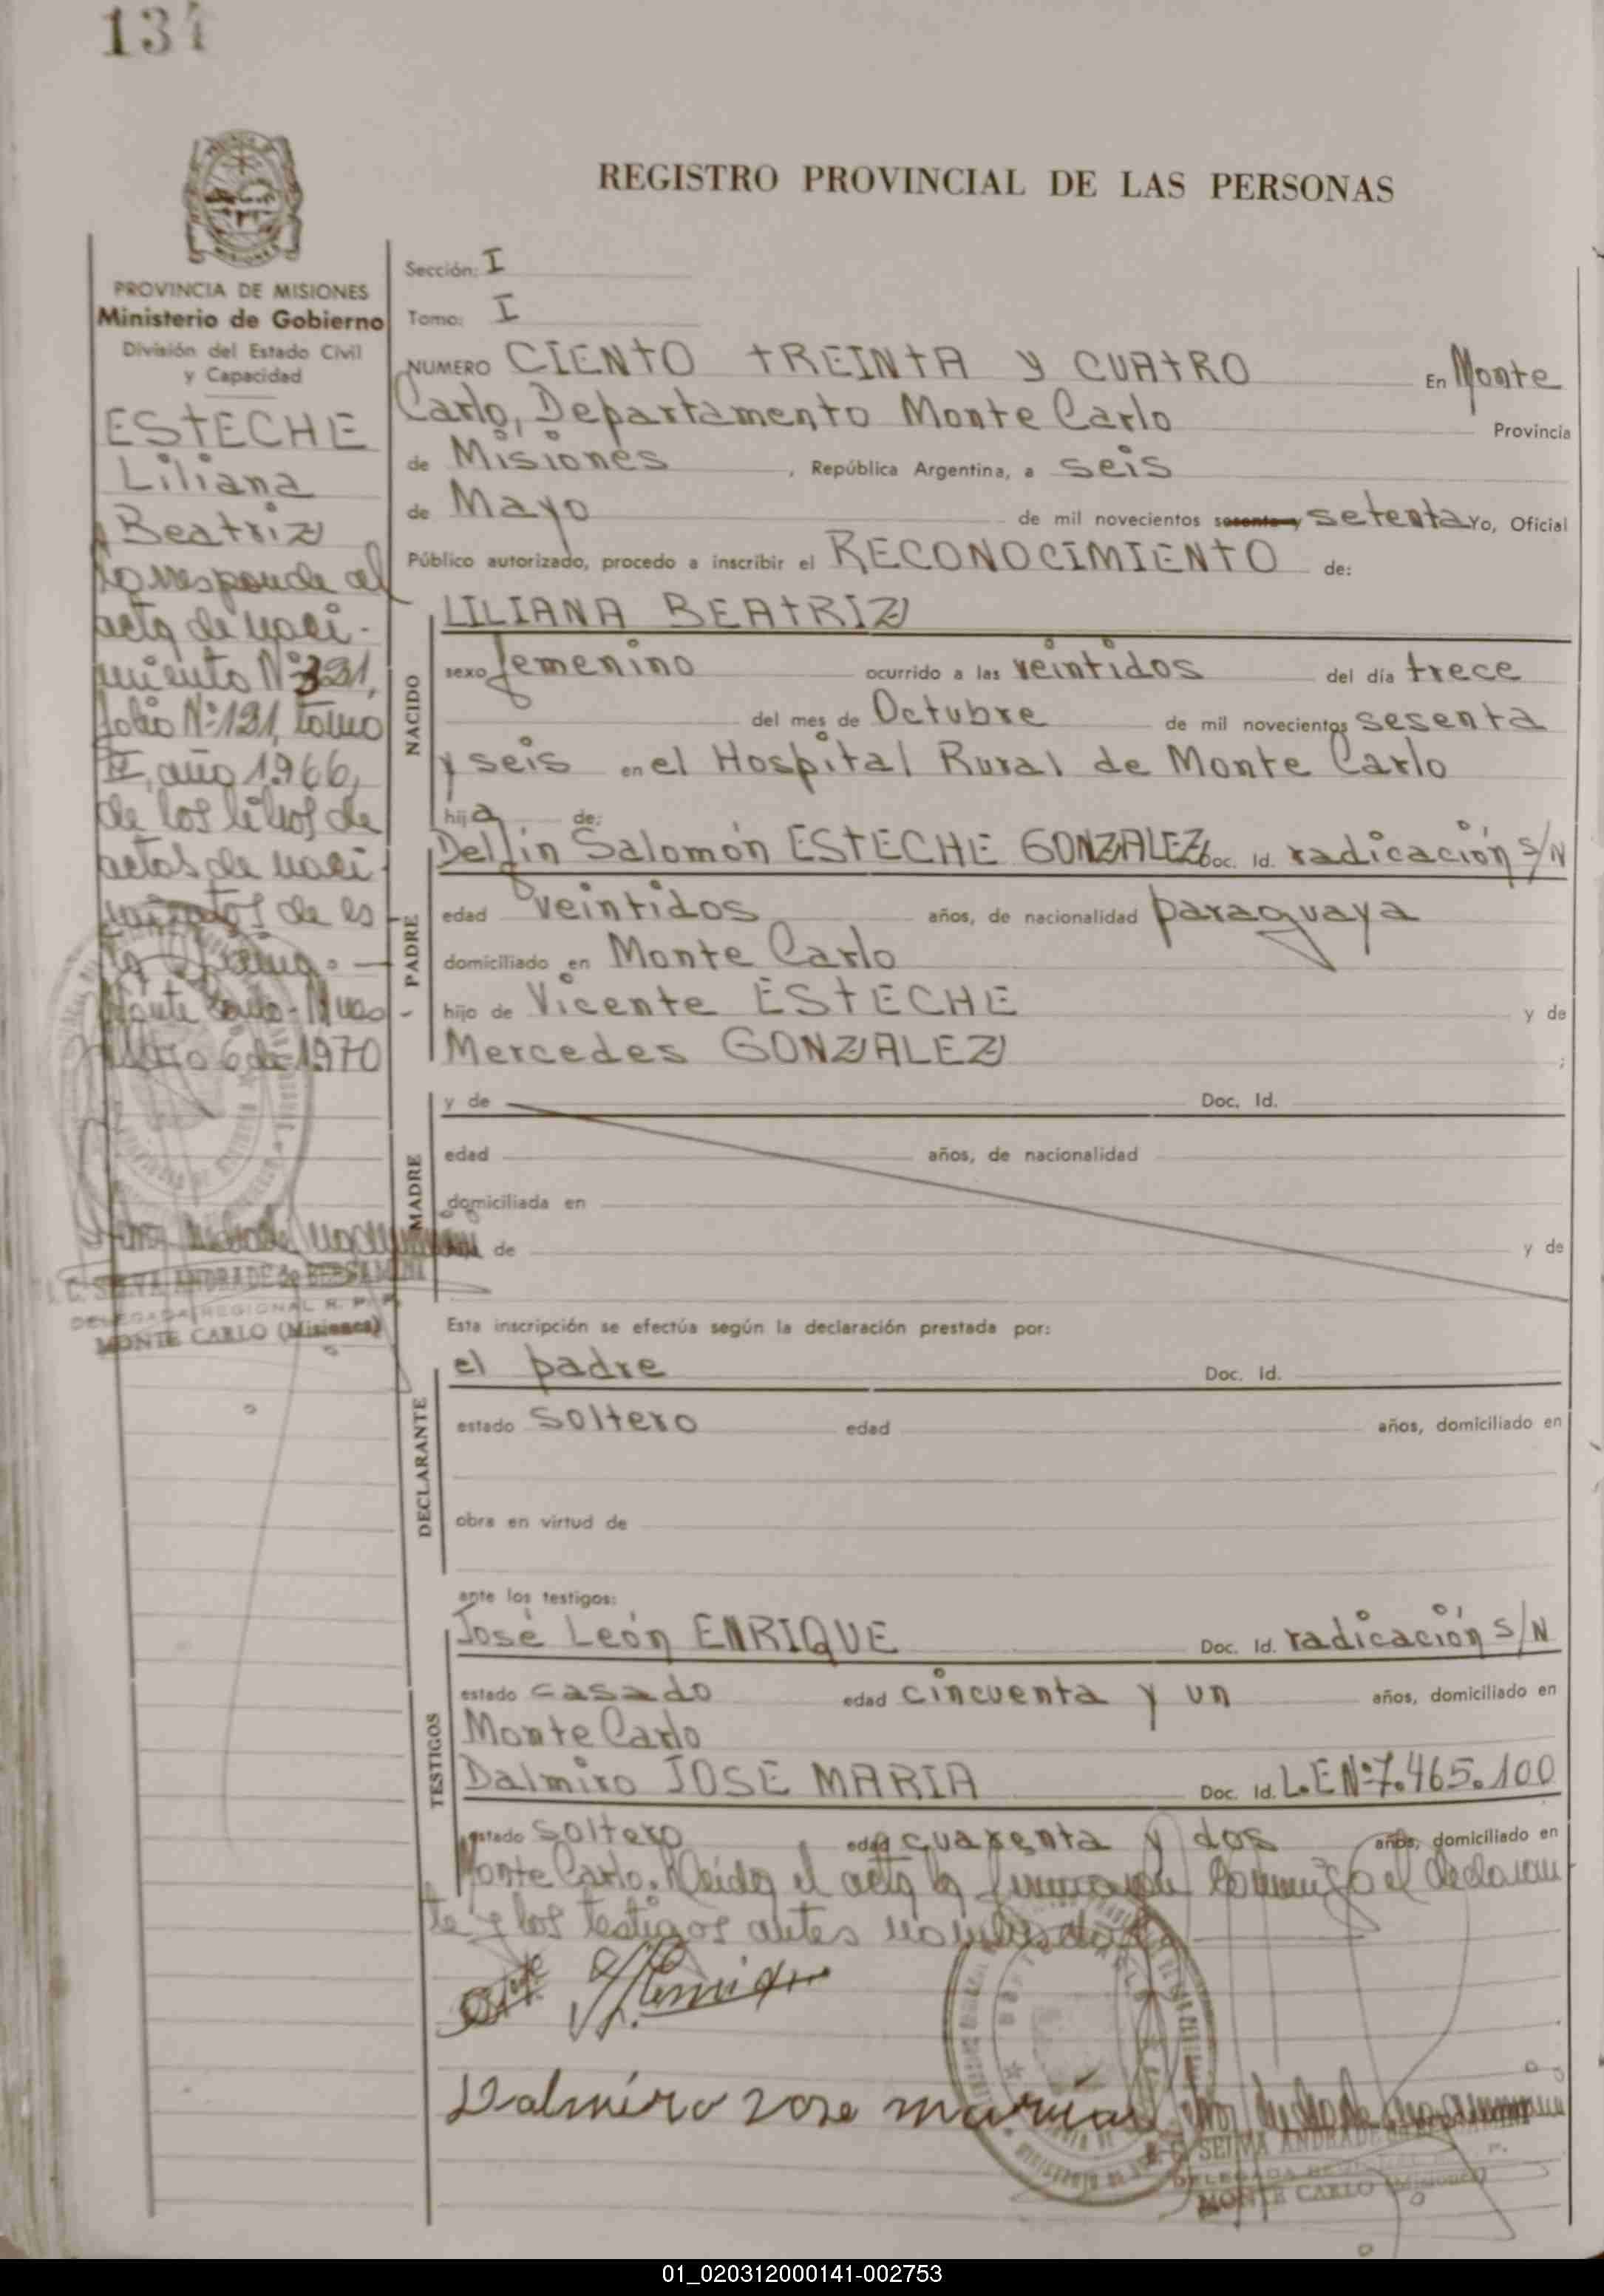 134
REGISTRO PROVINCIAL DE LAS PERSONAS
PROVINCIA DE MISIONES
Ministerio de Gobierno
División del Estado Civil
y Capacidad
ESTECHE
Liliana
Beatriz
Corresponde al
acta de naci-
miento Nº 391,
folio Nº 191, tomo
II, año 1.966,
de los libros de
actas de naci-
mientos de es
ta
Monte Carlo - Mnes
Mayo 6 de 1970
SELVA ANDRADE de
DELEGADA REGIONAL R. P. P.
MONTE CARLO (Misiones)
Sección: I
Tomo: I
NUMERO CIENTO TREINTA Y CUATRO En Monte
Carlo, Departamento Monte Carlo Provincia
de Misiones, República Argentina, a seis
de Mayo de mil novecientos sesenta y setenta Yo, Oficial
Público autorizado, procedo a inscribir el RECONOCIMIENTO de:
NACIDO
LILIANA BEATRIZ
sexo femenino ocurrido a las veintidos del día trece
del mes de Octubre de mil novecientos sesenta
y seis en el Hospital Rural de Monte Carlo
hija de:
PADRE
Delfín Salomón ESTECHE GONZALEZ Doc. Id. radicación S/N
edad veintidos años, de nacionalidad paraguaya
domiciliado en Monte Carlo
hijo de Vicente ESTECHE y de
Mercedes GONZALEZ ;
MADRE
y de Doc. Id.
edad años, de nacionalidad
domiciliada en
de y de
Esta inscripción se efectúa según la declaración prestada por:
DECLARANTE
el padre Doc. Id.
estado soltero edad años, domiciliado en
obra en virtud de
ante los testigos:
TESTIGOS
José León ENRIQUE Doc. Id. radicación S/N
estado casado edad cincuenta y un años, domiciliado en
Monte Carlo
Dalmiro JOSE MARIA Doc. Id. L.E Nº 7.465.100
estado soltero edad cuarenta y dos años, domiciliado en
Monte Carlo. Leída el acta la firmaron conmigo el declaran
te y los testigos antes nombrados
Dalmiro Jose maria
SELVA ANDRADE
DELEGADA
MONTE CARLO (Misiones)
01_020312000141-002753